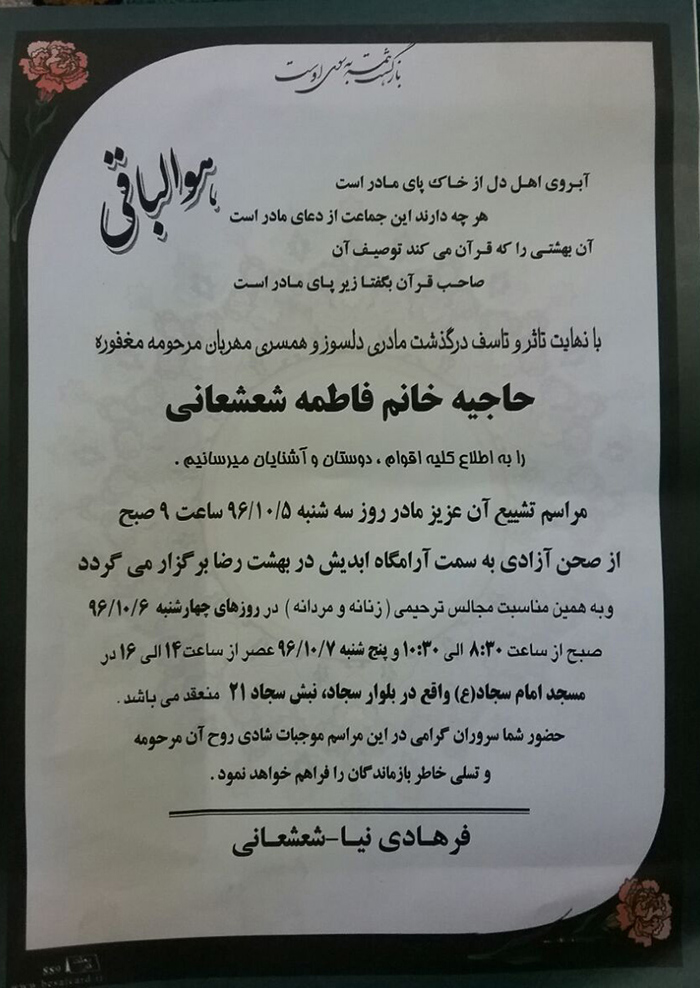 بازگشت همه به سوی اوست
هوالباقی
آبروی اهل دل از خاک پای مادر است
هر چه دارند این جماعت از دعای مادر است
آن بهشتی را که قرآن می کند توصیف آن
صاحب قرآن بگفتا زیر پای مادر است
با نهایت تاثر و تاسف درگذشت مادری دلسوز و همسری مهربان مرحومه مغفوره
حاجیه خانم فاطمه شعشعانی
را به اطلاع کلیه اقوام ، دوستان و آشنایان میرسانیم .
مراسم تشییع آن عزیز مادر روز سه شنبه ۹۶/۱۰/۵ ساعت ۹ صبح
از صحن آزادی به سمت آرامگاه ابدیش در بهشت رضا برگزار می گردد
و به همین مناسبت مجالس ترحیمی ( زنانه و مردانه ) در روزهای چهارشنبه ۹۶/۱۰/۶
صبح از ساعت ۸:۳۰ الی ۱۰:۳۰ و پنج شنبه ۹۶/۱۰/۷ عصر از ساعت ۱۴ الی ۱۶ در
مسجد امام سجاد(ع) واقع در بلوار سجاد، نبش سجاد ۲۱ منعقد می باشد .
حضور شما سروران گرامی در این مراسم موجبات شادی روح آن مرحومه
و تسلی خاطر بازماندگان را فراهم خواهد نمود .
فرهادی نیا-شعشعانی